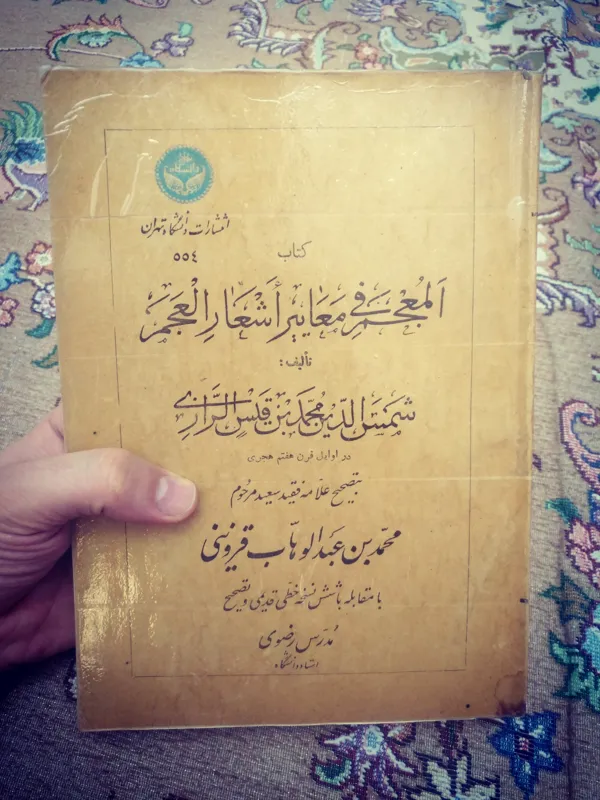 انتشارات دانشگاه تهران
۵۵۴
کتاب
اَلْمُعْجَم فِي مَعَاييرِ أَشْعَارِ الْعَجَمِ
تألیف:
شَمْسُ الدّین مُحَمَّد بْن قَیْسِ الرَّازِي
در اوایل قرن هفتم هجری
بتصحیح علّامه فقید سعید مرحوم
محمّد بن عبدالوهّاب قزوینی
با مقابله با شش نسخه خطی قدیمی و تصحیح
مُدرّس رضوی
استاد دانشگاه